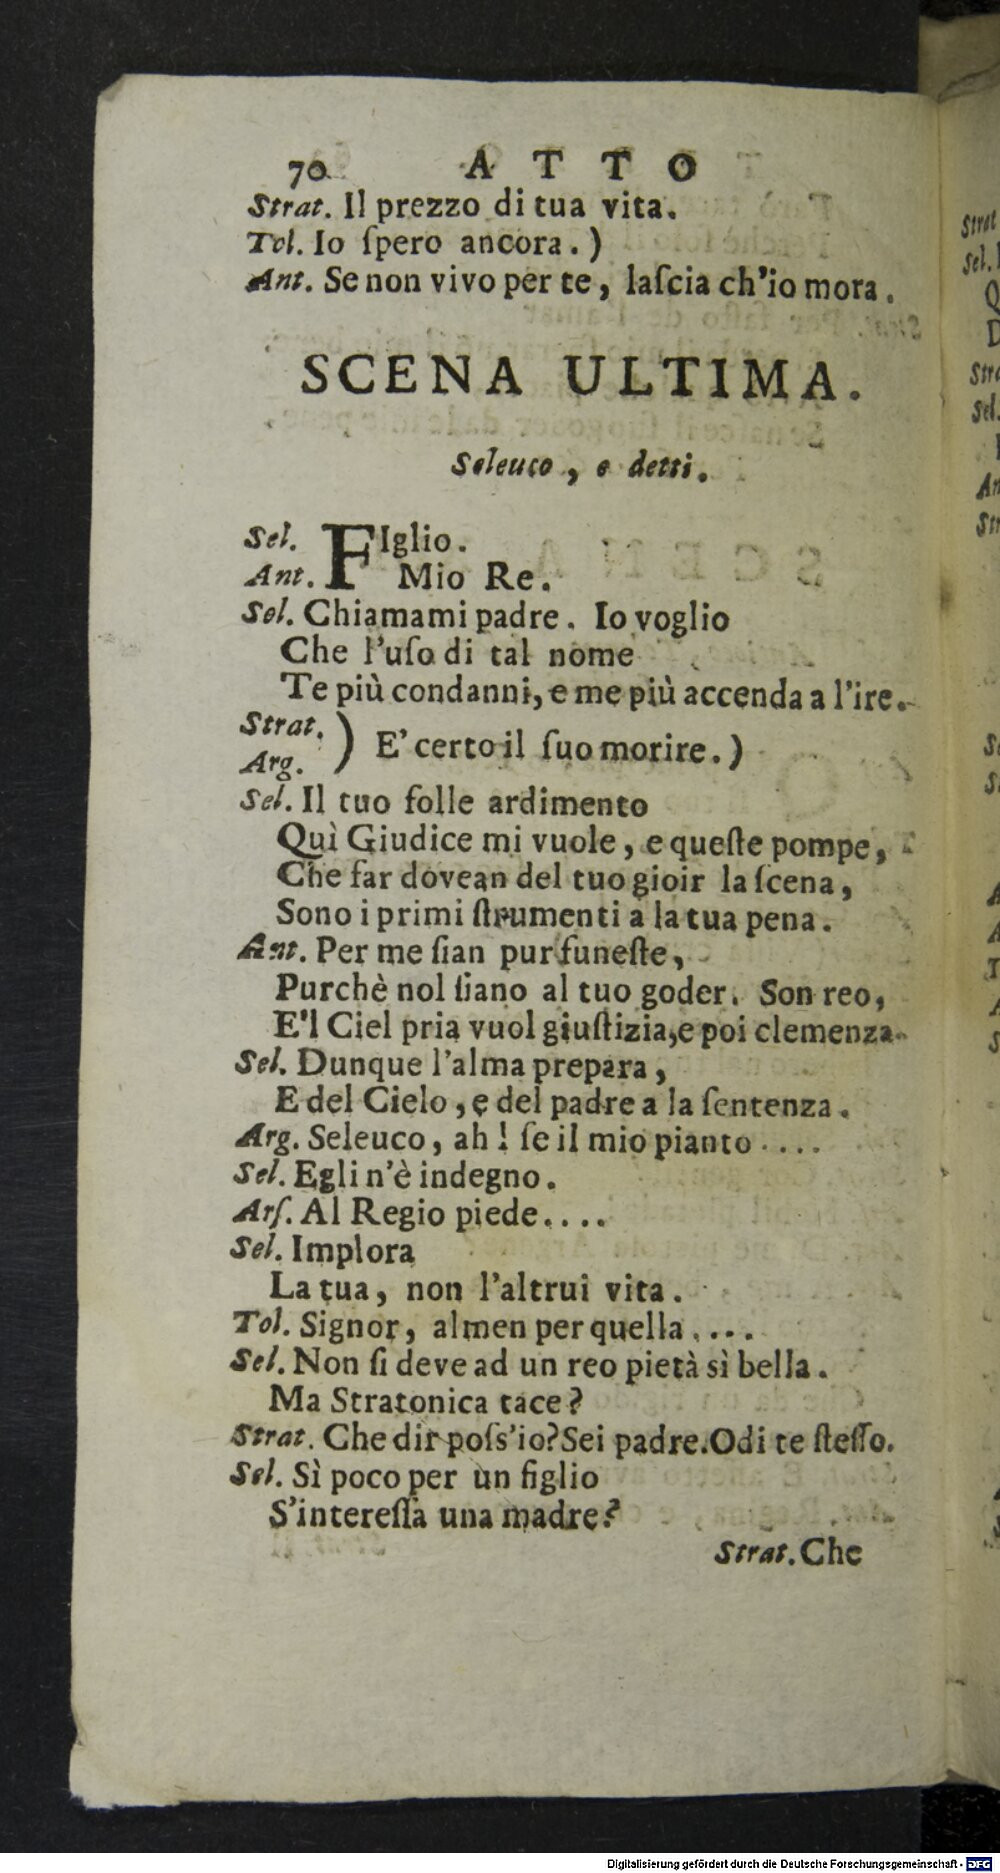 70 ATTO
Strat. Il prezzo di tua vita.
Tol. Io ſpero ancora.)
Ant. Se non vivo per te, laſcia ch'io mora.
SCENA ULTIMA.
Seleuco, e detti.
Sel. FIglio.
Ant. Mio Re.
Sel. Chiamami padre. Io voglio
Che l'uſo di tal nome
Te più condanni, e me più accenda a l'ire.
Strat.
Arg. ) E' certo il ſuo morire.)
Sel. Il tuo folle ardimento
Quì Giudice mi vuole, e queſte pompe,
Che far dovean del tuo gioir la ſcena,
Sono i primi ſtrumenti a la tua pena.
Ant. Per me ſian pur funeſte,
Purchè nol ſiano al tuo goder. Son reo,
E'l Ciel pria vuol giuſtizia, e poi clemenza.
Sel. Dunque l'alma prepara,
E del Cielo, e del padre a la ſentenza.
Arg. Seleuco, ah! ſe il mio pianto....
Sel. Egli n'è indegno.
Arſ. Al Regio piede....
Sel. Implora
La tua, non l'altrui vita.
Tol. Signor, almen per quella....
Sel. Non ſi deve ad un reo pietà sì bella.
Ma Stratonica tace?
Strat. Che dir poſs'io? Sei padre. Odi te ſteſſo.
Sel. Sì poco per un figlio
S'intereſſa una madre?
Strat. Che
Digitalisierung gefördert durch die Deutsche Forschungsgemeinschaft - DFG